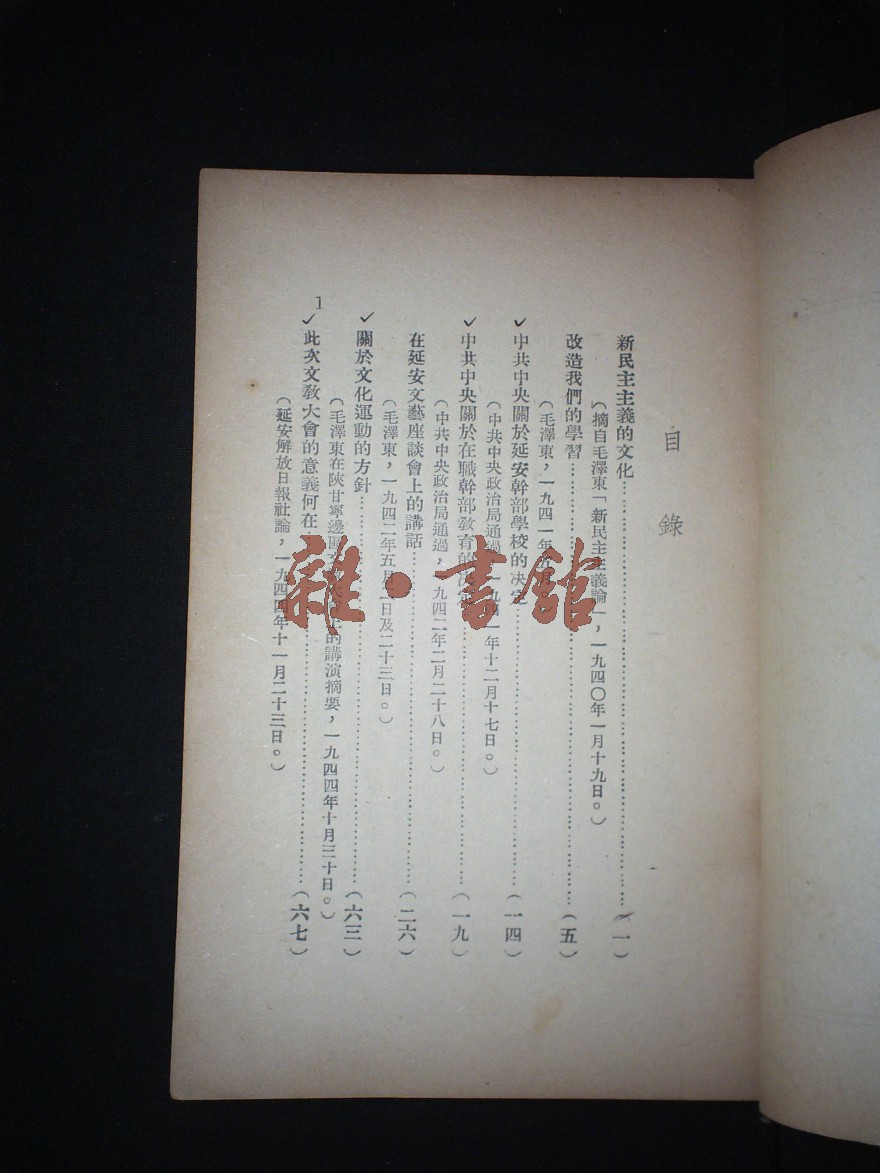 目錄
新民主主義的文化……(一)
(摘自毛澤東「新民主主義論」，一九四〇年一月十九日。)
改造我們的學習……(五)
(毛澤東，一九四一年五月
✓中共中央關於延安幹部學校的決定……(一四)
(中共中央政治局通過，一九四一年十二月十七日。)
✓中共中央關於在職幹部教育的決定……(一九)
(中共中央政治局通過，一九四二年二月二十八日。)
在延安文藝座談會上的講話……(二六)
(毛澤東，一九四二年五月二日及二十三日。)
✓關於文化運動的方針……(六三)
(毛澤東在陝甘寧邊區 的講演摘要，一九四四年十月三十日。)
✓此次文教大會的意義何在……(六七)
(延安解放日報社論，一九四四年十一月二十三日。)
1
雜·書館